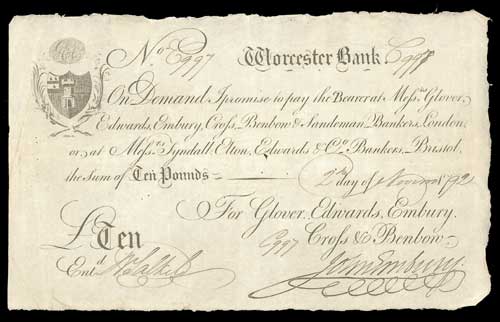 No. E997 Worcester Bank E997
On Demand I promise to pay the Bearer at Mess.rs Glover,
Edwards, Embury, Cross, Benbow & Sandeman, Bankers, London,
or at Mess.rs Tyndall, Elton, Edwards & Co. Bankers, Bristol,
the Sum of Ten Pounds 2nd day of 179
For Glover, Edwards, Embury,
£ Ten E997 Cross & Benbow
Ent.d John Embury